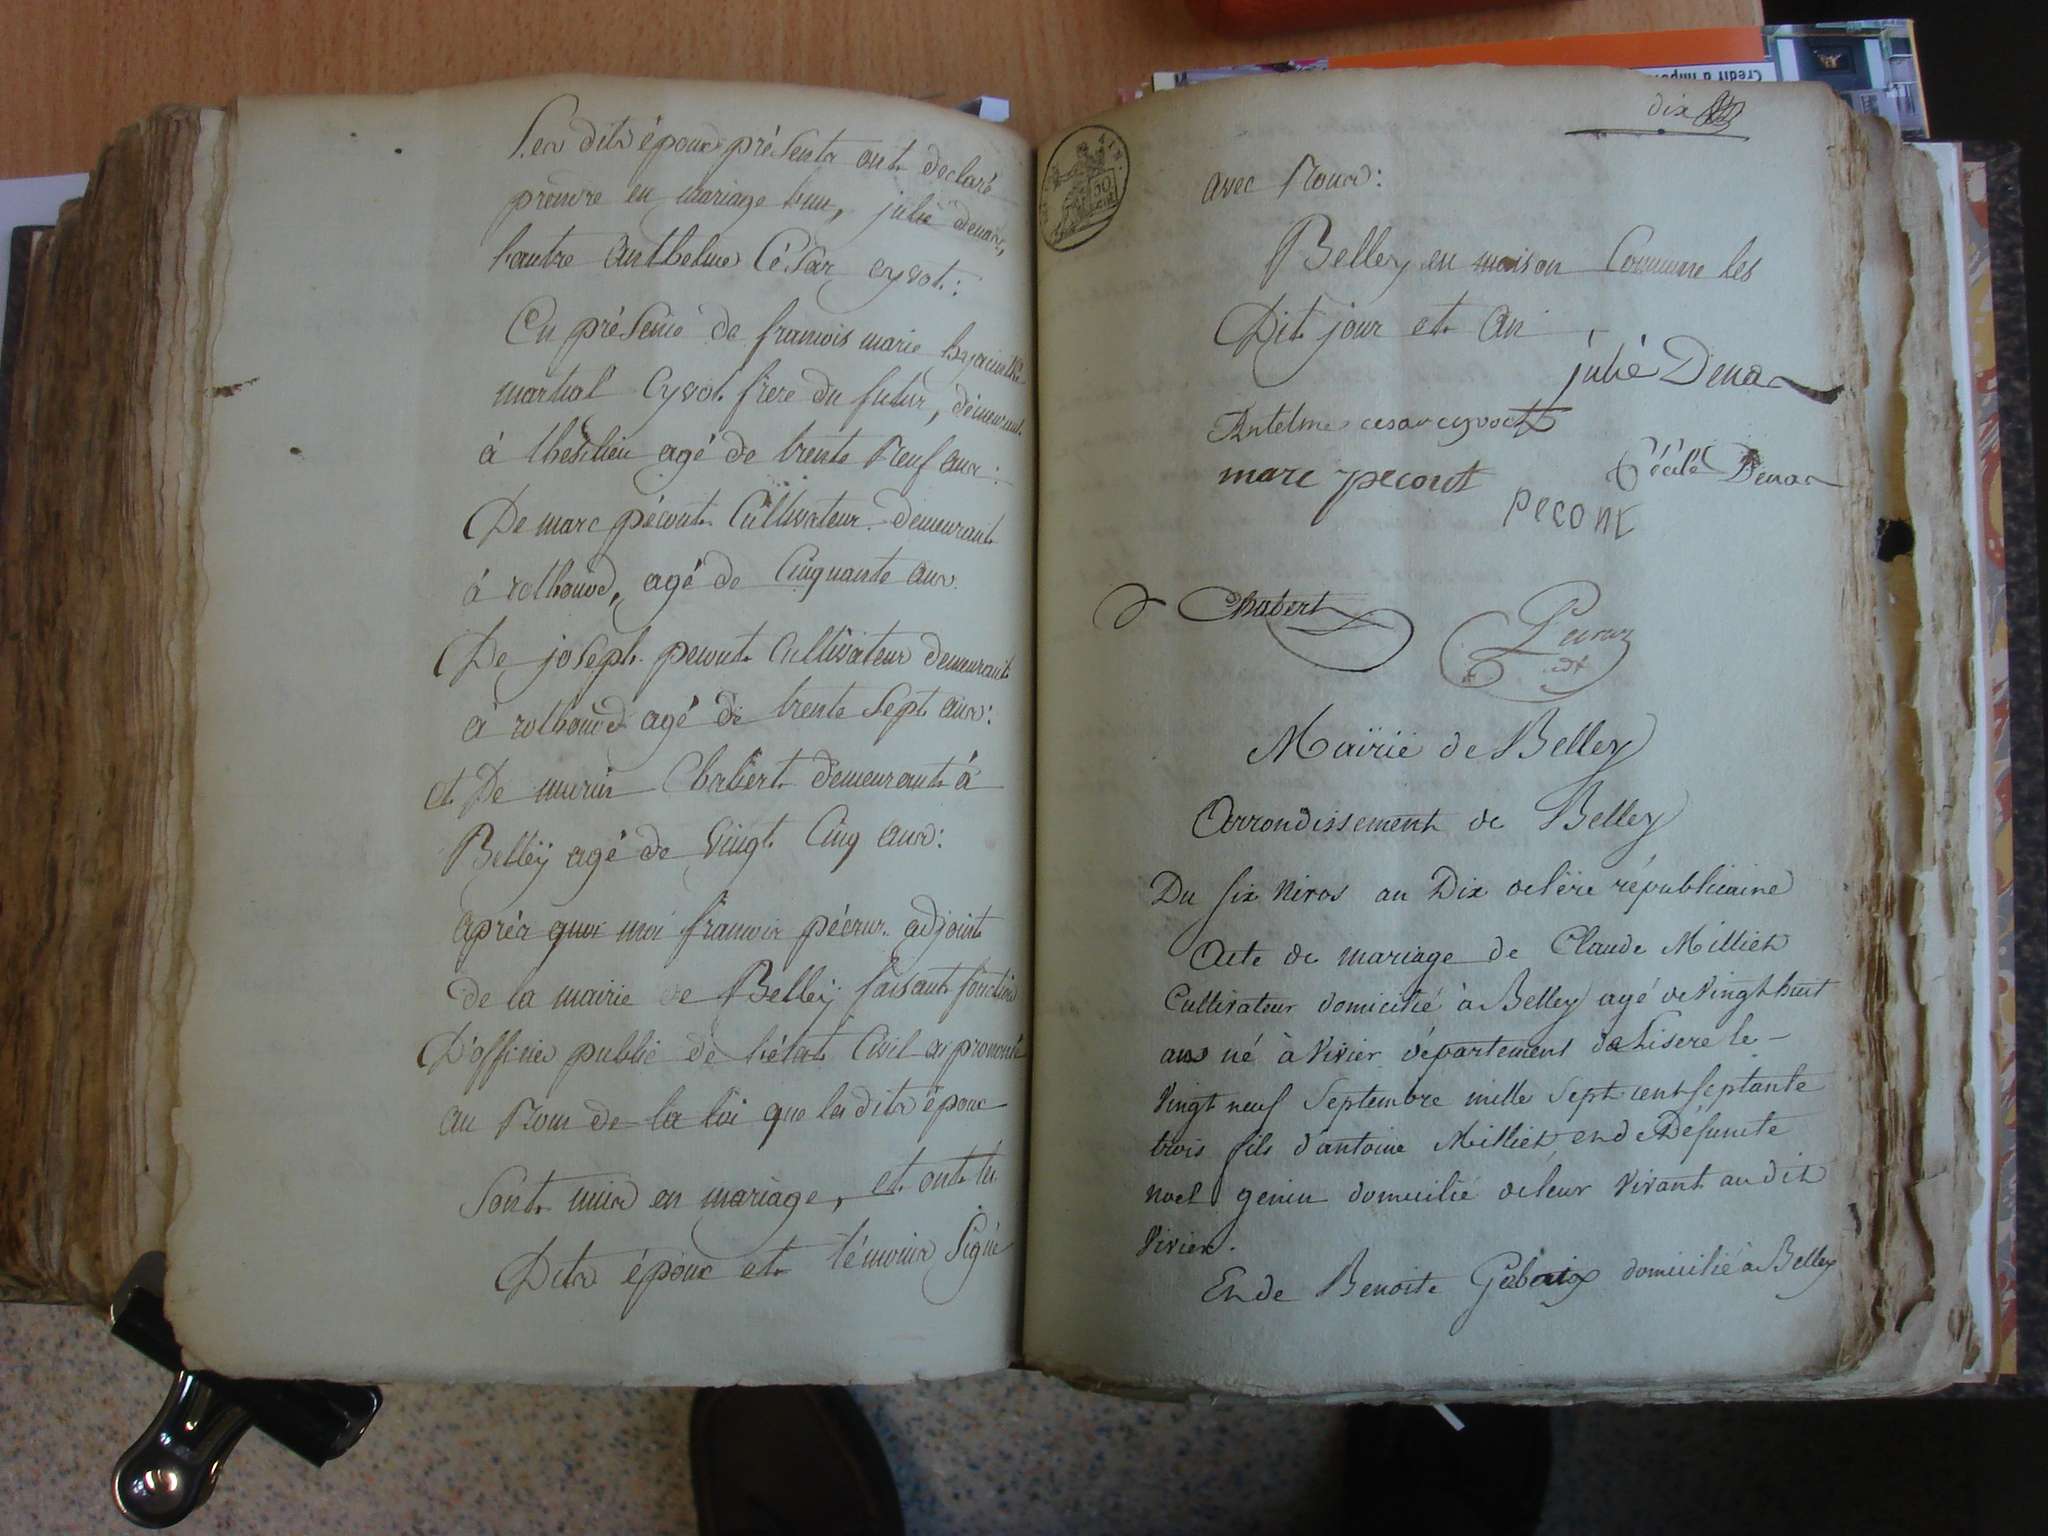 Les dits époux présents ont déclaré
prendre en mariage l'un, julie denar,
l'autre Anthelme César cyvot:
En présence de francois marie hyacinthe
martial Cyvot frere du futur, demeurant
à thesilieu agé de trente Neuf ans:
De marc pécout Cultivateur demeurant
à rothonod, agé de Cinquante ans
De joseph pecout Cultivateur demeurant
à rothonod agé de trente Sept ans:
et De Chabert demeurant à
Belley agé de Vingt Cinq ans:
après quoi moi francois adjoint
de la mairie de Belley faisant fonction
D'officier public de l'état Civil ai prononcé
au Nom de la loi que les dits époux
Sont unis en mariage, et ont les
Dits époux et témoins Signé
dix
avec Nous:
Belley en maison Commune les
Dit jour et An
julie Denar
Antelme cesar cyvoct
marc pecout
Cécile Denar
pecout
Chabert
adt
50
Mairie de Belley
Arrondissement de Belley
Du six Nivos an Dix de lère républicaine
Acte de mariage de Claude Milliet
Cultivateur domicilié à Belley agé de Vingt huit
ans né à Vivier département de Lisere le -
Vingt neuf Septembre mille Sept cent septante
trois fils d'antoine Milliet et de Défunte
Noel genin domicilié de leur vivant au dit
Vivier.
Et de Benoite domicilié à Belley
Crédit d'impô